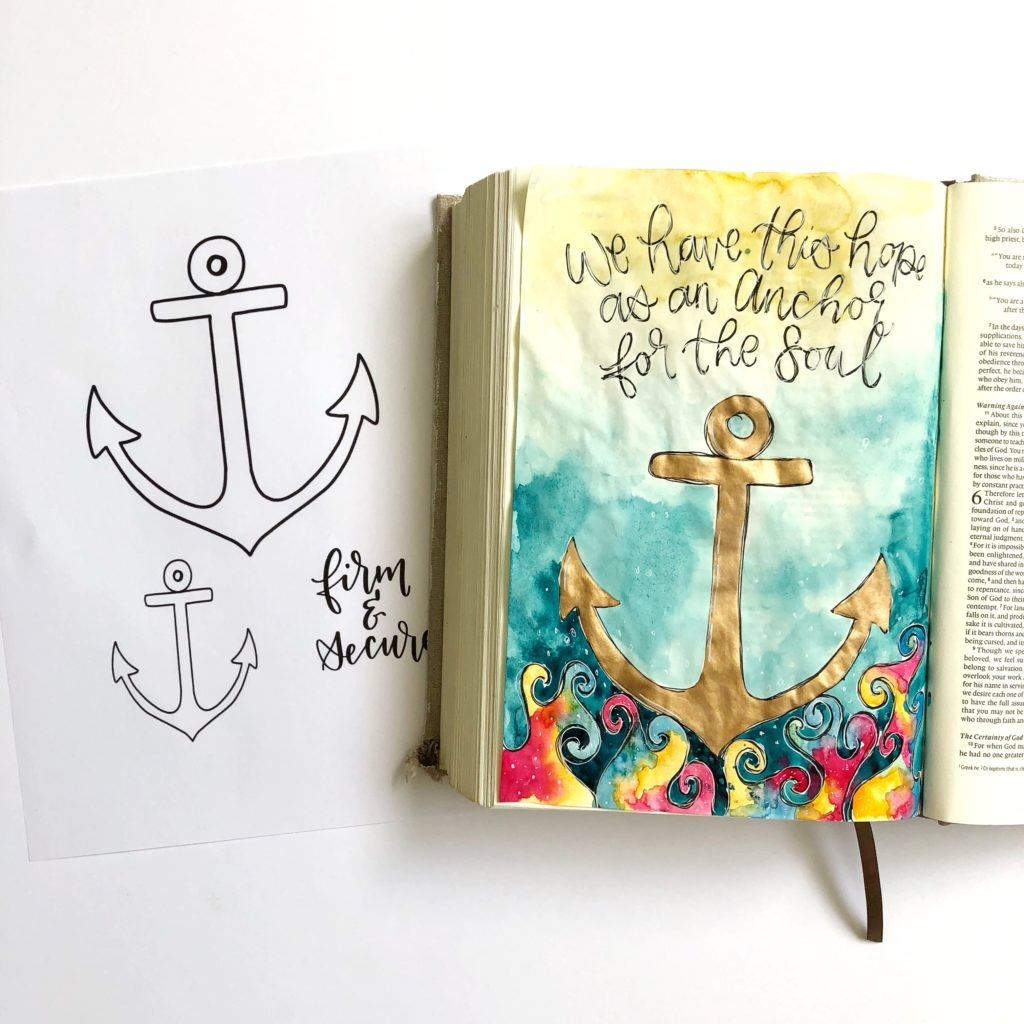 firm
&
secure
We have this hope
as an anchor
for the Soul
⁵So also
high priest, b
"You are
today
⁶as he says als
"You are a
after th
⁷In the days
supplications,
able to save hi
of his reveren
obedience thro
perfect, he beca
who obey him,
after the order
Warning Again
¹¹About this
explain, since y
though by this t
someone to teach
cles of God. You n
who lives on mil
ness, since he is a
for those who ha
by constant pract
6 Therefore let
Christ and g
foundation of rep
toward God, ² and
laying on of hand
eternal judgment.
⁴For it is impossib
been enlightened,
and have shared in
goodness of the wo
come, ⁶ and then ha
to repentance, sinc
Son of God to thei
contempt. ⁷ For lan
falls on it, and prod
sake it is cultivated,
if it bears thorns and
being cursed, and its
⁹Though we spe
beloved, we feel su
belong to salvation.
overlook your work
for his name in servin
we desire each one of
to have the full assu
that you may not be
who through faith an
The Certainty of God
¹³For when God m
he had no one greater